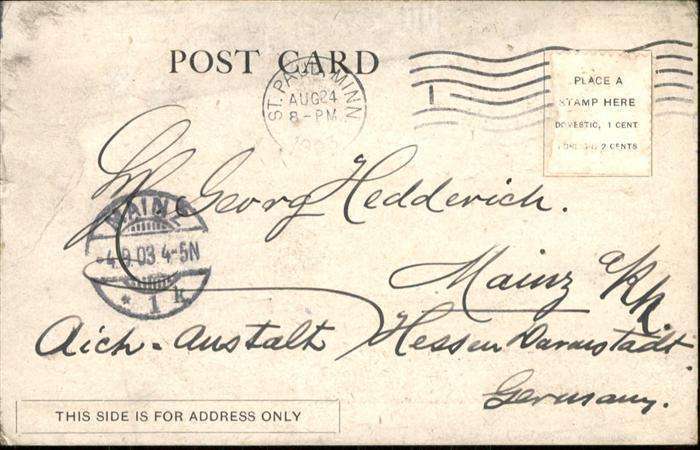 POST CARD
ST. PAUL, MINN
AUG 24
8-PM
1903
PLACE A
STAMP HERE
DOMESTIC, 1 CENT
FOREIGN, 2 CENTS
Georg Hedderich.
MAINZ
-4.9.03 4-5N
* 1 k.
Mainz a/Rh.
Aich-Anstalt Hessen Darmstadt.
Germany.
THIS SIDE IS FOR ADDRESS ONLY